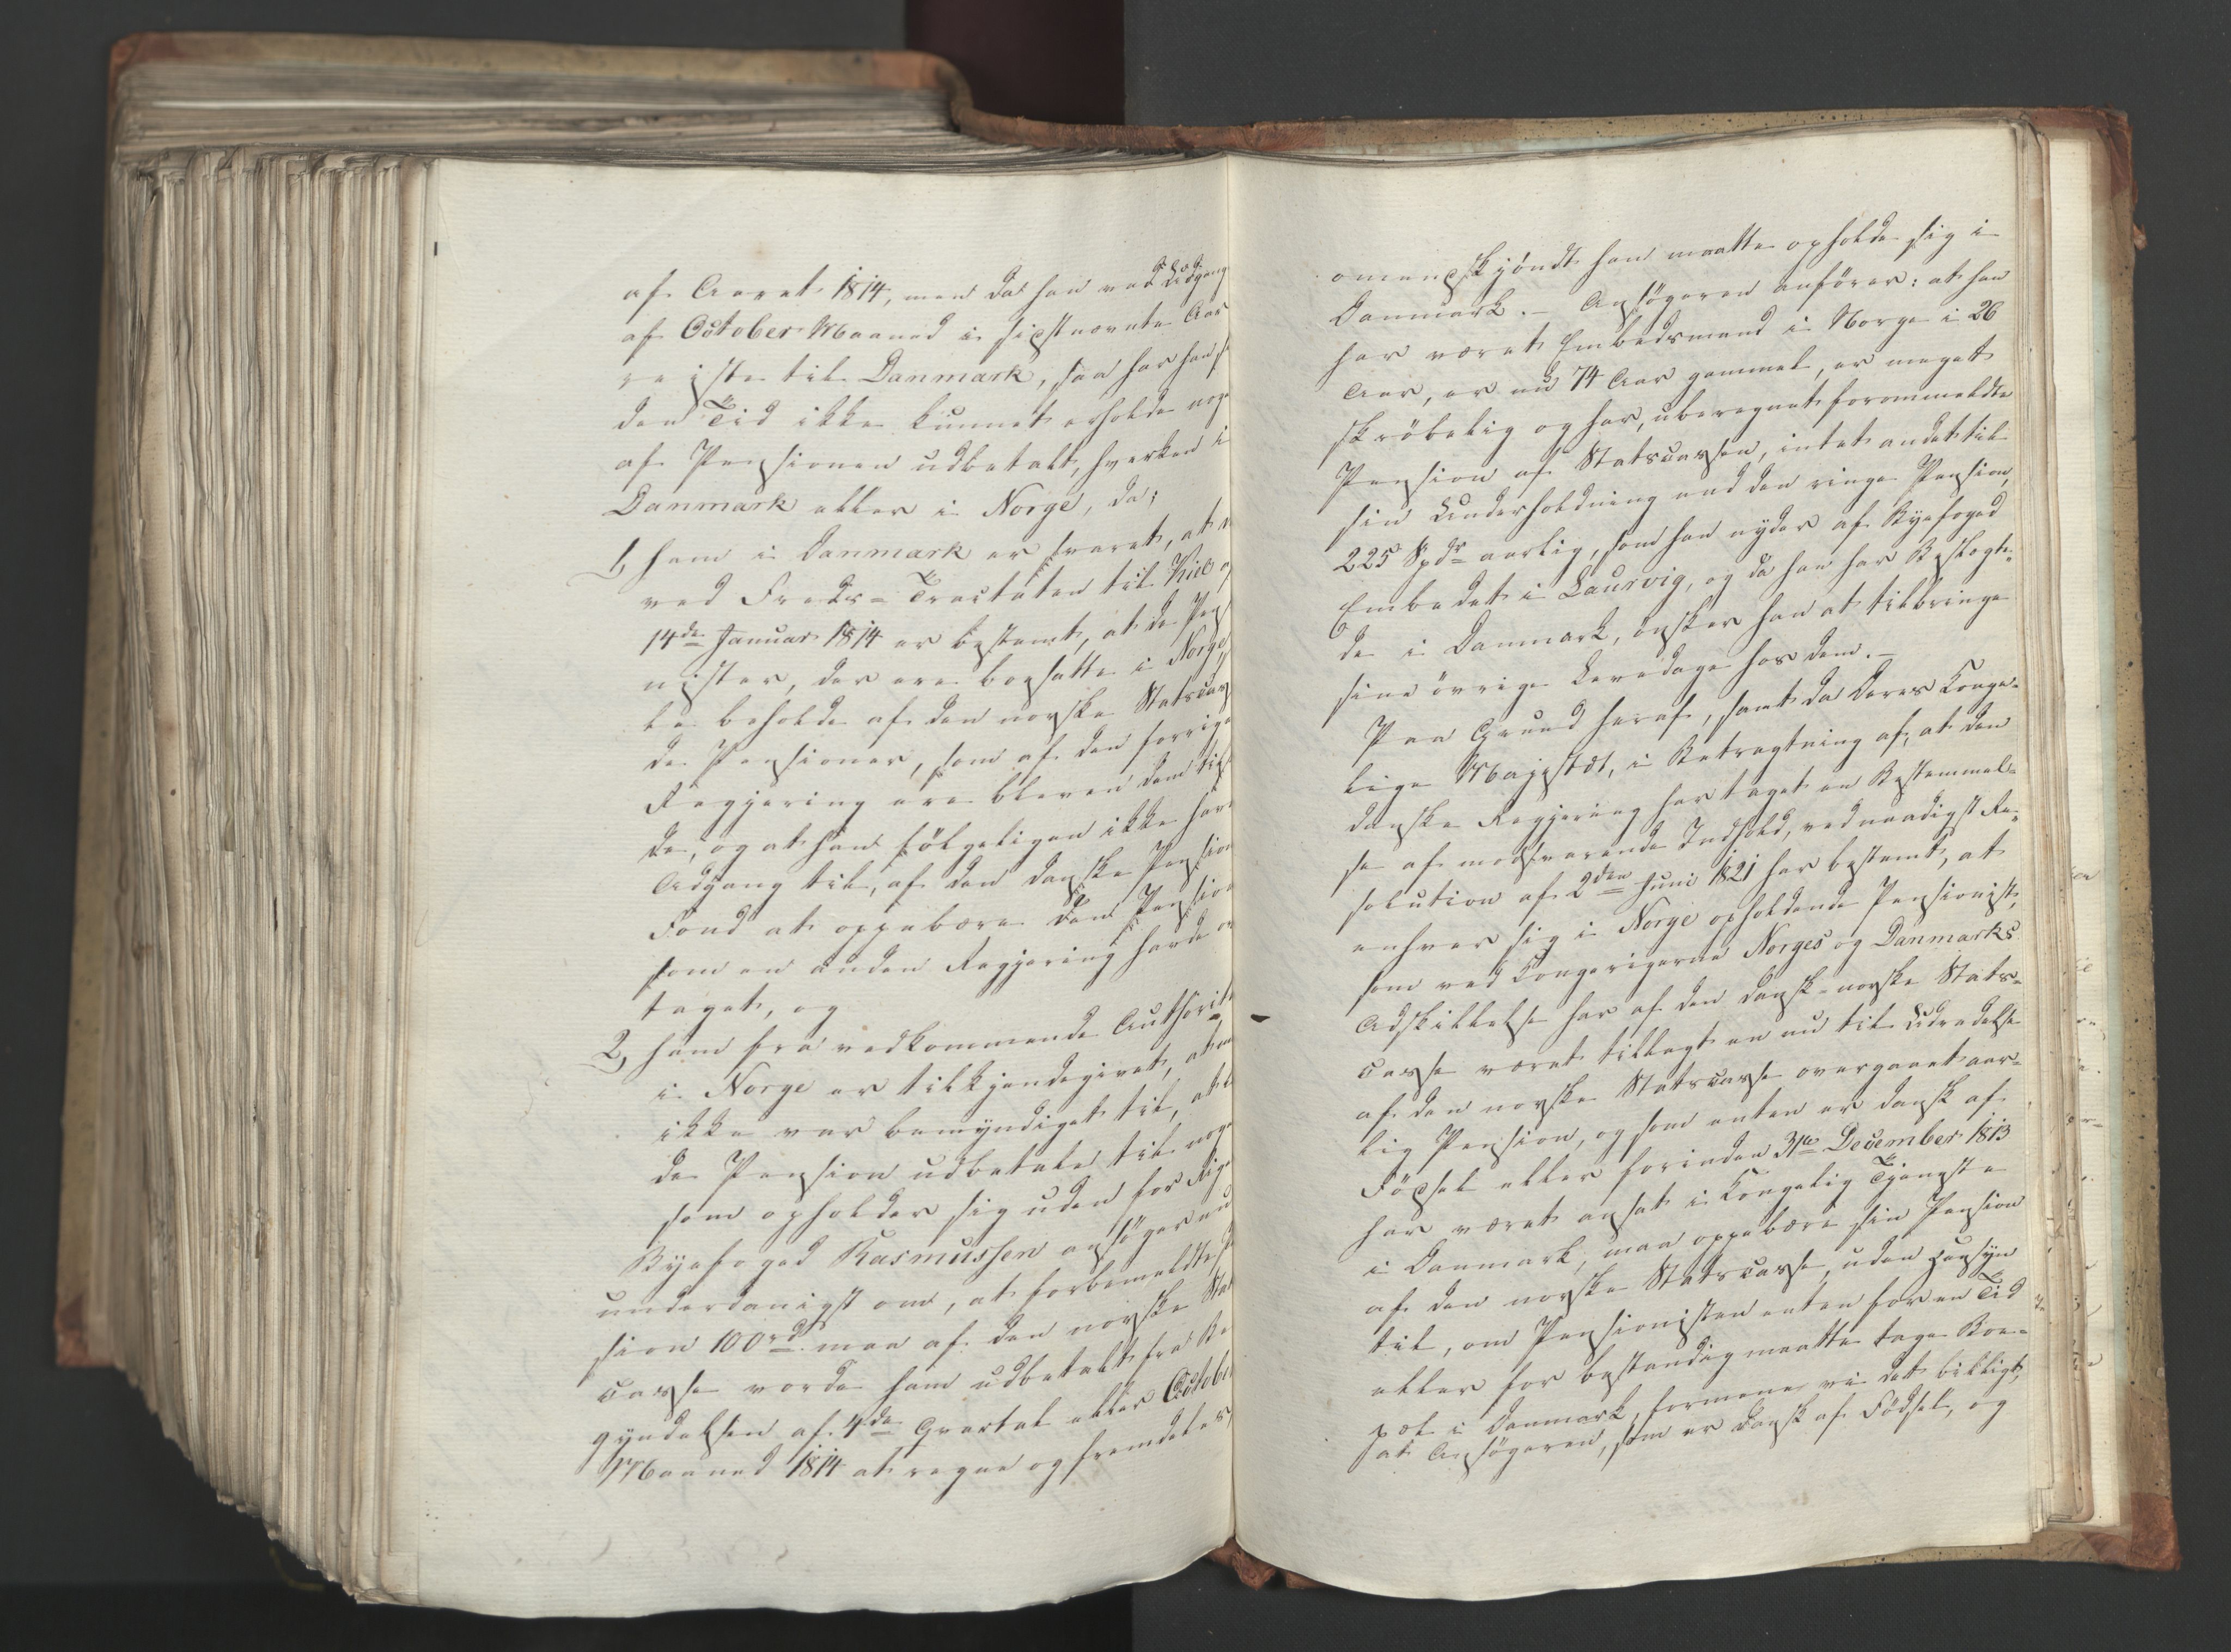 af Aaret 1814, men da han ved Udgang
af October Maaned i sidstnævnte Aar
reiste til Danmark, saa har han si
den Tid ikke kunnet erholde noge
af Pensionen udbetalt, hverken i
Danmark eller i Norge, da;
1, ham i Danmark er svaret, at
ved Freds-Tractaten til Kiel
14de Januar 1814 er bestemt, at de Pen
nister, der ere bosatte i Norge,
le beholde af den norske Statscas
de Pensioner, som af den forrige
Regjering ere bleven dem til
de, og at han følgeligen ikke har
Adgang til, af den danske Pension
Fond at oppebære den Pension
som en anden Regjering havde
taget, og
2, ham fra vedkommende Authorit
i Norge er tilkjendegivet, at
ikke var bemyndiget til, at
de Pension udbetale til noge
som opholder sig uden for Rig
Byefoged Rasmussen ansøger nu
underdanigst om, at forbemeldte
sion 100 rd. maa af den norske Sta
casse vorde ham udbetalt fra Be
gyndelsen af 4de Qvartal eller Octobe
Maaned 1814 at regne og fremdeles,
omendskjöndt han maatte opholde sig i
Danmark. - Ansøgeren anfører: at han
har været Embedsmand i Norge i 26
Aar, er nu 74 Aar gammel, er meget
skröbelig og har, uberegnet forommeldte
Pension af Statscassen, intet andet til
sin Underholdning end den ringe Pension,
225 Spdr aarlig, som han nyder af Byefoged
Embedet i Laurvig, og da han har Beslægte-
de i Danmark, önsker han at tilbringe
sine övrige Levedage hos dem. -
Paa Grund heraf, samt da Deres Konge-
lige Majestæt, i Betragtning af, at den
danske Regjering har taget en Bestemmel-
se af modsvarende Indhold, ved naadigst Re-
solution af 2den Juni 1821 har bestemt, at
enhver sig i Norge opholdende Pensionist,
som ved Kongerigerne Norges og Danmarks
Adskillelse har af den dansk-norske Stats-
casse været tillagt en nu til Udredelse
af den norske Statscasse overgaaet aar-
lig Pension, og som enten er dansk af
Födsel eller forinden 31te December 1813
har været ansat i Kongelig Tjeneste
i Danmark, maa oppebære sin Pension
af den norske Statscasse, uden Hensyn
til, om Pensionisten enten for en Tid
eller for bestandig maatte tage Boe-
pæl i Danmark, formene vi det billigt,
at Ansøgeren, som er dansk af Födsel, og